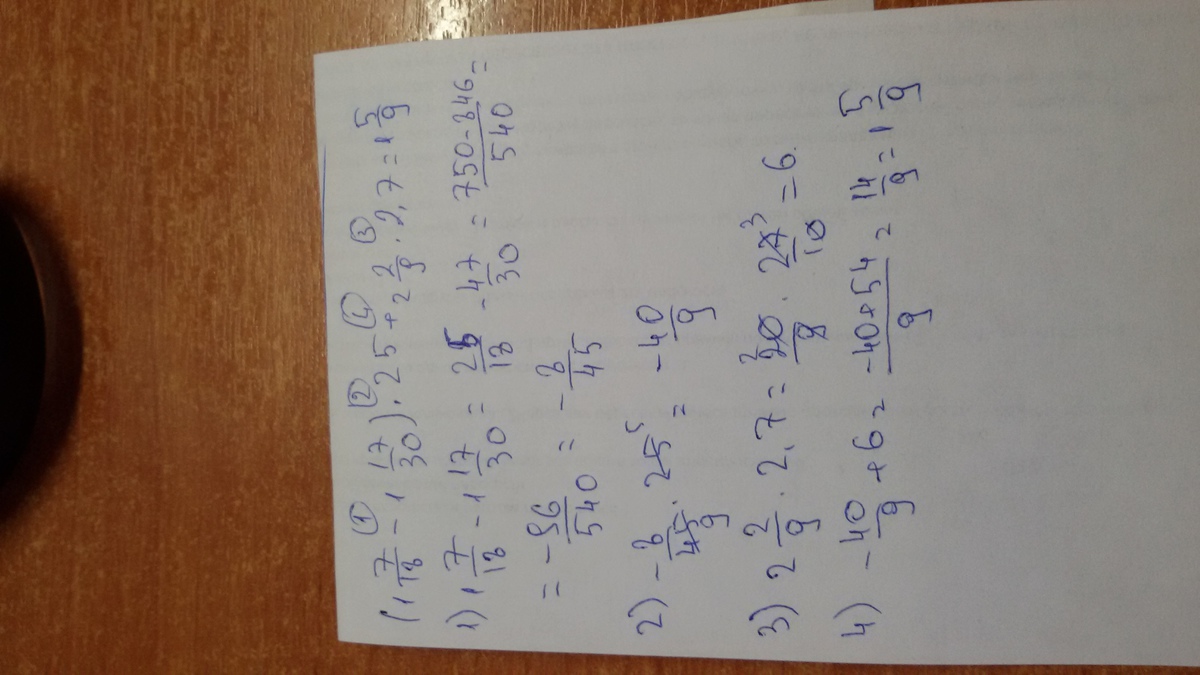 (1 7/18 ① - 1 17/30) ② · 25 ④ + 2 2/9 ③ · 2,7 = 1 5/9
1) 1 7/18 - 1 17/30 = 25/18 - 47/30 = 750-846/540 =
= - 96/540 = - 8/45
2) - 8/45 9 · 25 5 = - 40/9
3) 2 2/9 · 2,7 = 2 20/9 · 27 3/10 = 6.
4) - 40/9 + 6 = -40+54/9 = 14/9 = 1 5/9